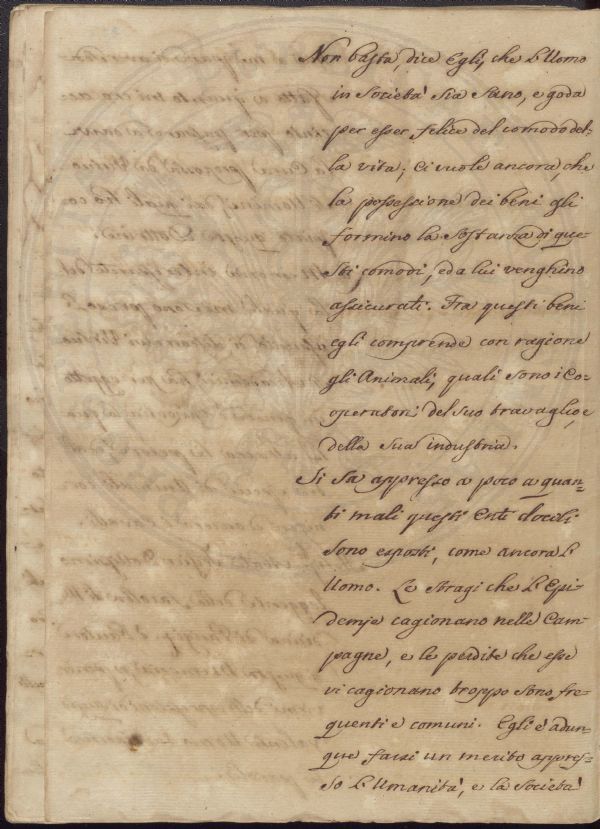 Non basta, dice Egli, che L'Uomo
in Società Sia Sano, e goda
per esser felice del comodo del-
la vita; Ci vuole ancora, che
la possessione dei beni gli
formino la Sostanza di que-
sti comodi, ed a lui venghino
assicurati. Fra questi beni
egli comprende con ragione
gli Animali, quali sono i Co-
operatori del suo travaglio, e
della Sua industria.
Si Sa appresso a poco a quan-
ti mali questi Enti docili
sono esposti, come ancora L'
Uomo. Le Stragi che L'Epi-
demje cagionano nelle Cam-
pagne, e le perdite che esse
vi cagionano troppo sono fre-
quenti e comuni. Egli è adun-
que farsi un merito appres-
so L'Umanità, e la Società